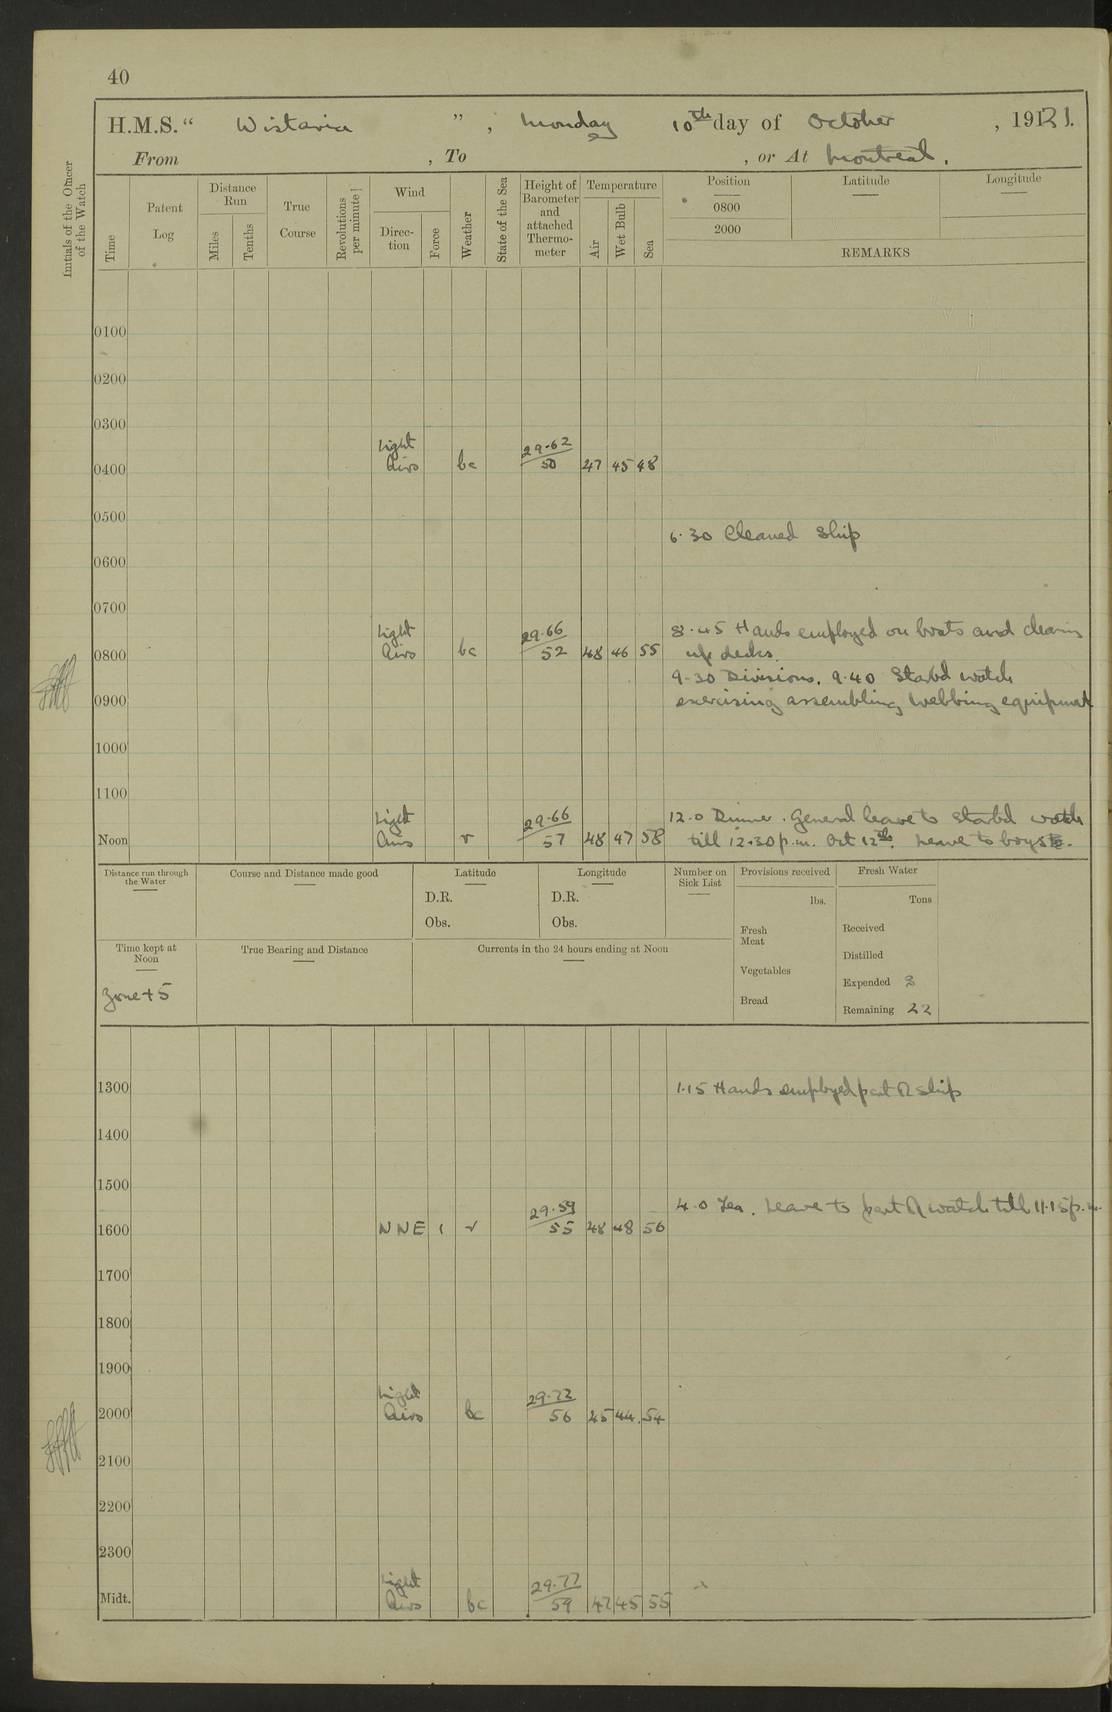 40
H.M.S. “ Wistaria ” , Monday 10th day of October , 1921.
From , To , or At Montreal.
Initials of the Officer of the Watch
Time
Patent Log
Distance Run
Miles
Tenths
True Course
Revolutions per minute
Wind
Direction
Force
Weather
State of the Sea
Height of Barometer and attached Thermometer
Temperature
Air
Wet Bulb
Sea
Position
0800
2000
Latitude
Longitude
REMARKS
0100
0200
0300
0400 Light Airs bc 29.62 50 47 45 48
0500
6.30 Cleaned Ship
0600
0700
8.45 Hands employed on boats and cleaning
0800 Light Airs bc 29.66 52 48 46 55 up decks.
9.30 Divisions. 9.40 Starbd watch
0900 exercising assembling webbing equipment
1000
1100
12.0 Dinner. General leave to Starbd watch
Noon Light Airs r 29.66 57 48 47 58 till 12.30 p.m. Oct 12th. Leave to boys
Distance run through the Water
Course and Distance made good
Latitude
D.R.
Obs.
Longitude
D.R.
Obs.
Number on Sick List
Provisions received
lbs.
Fresh Meat
Vegetables
Bread
Fresh Water
Tons
Received
Distilled
Expended 2
Remaining 22
Time kept at Noon
Zone + 5
True Bearing and Distance
Currents in the 24 hours ending at Noon
1300 1.15 Hands employed part of ship
1400
1500
4.0 Tea. Leave to part of watch till 11.15 p.m.
1600 NNE 1 r 29.59 55 48 48 56
1700
1800
1900
2000 Light Airs bc 29.72 56 45 44 54
2100
2200
2300
Midt. Light Airs bc 29.77 59 47 45 55